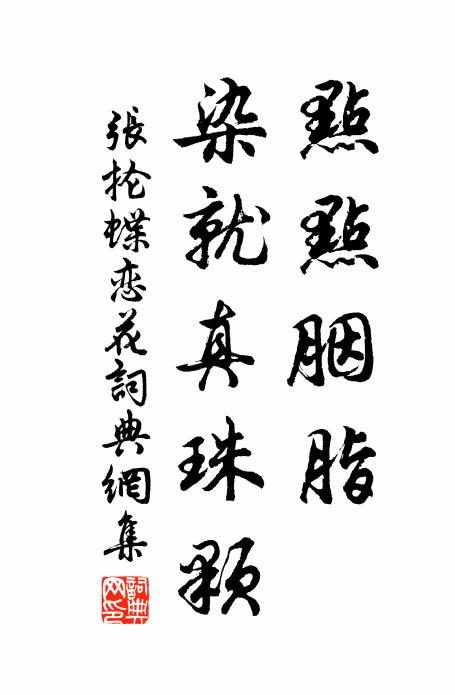 點點胭脂
染就真珠顆
張抡蝶恋花詞典網集
詞典網印